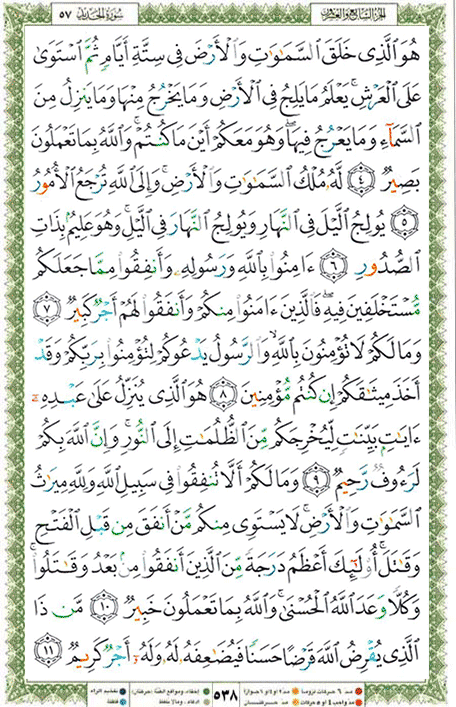 الجزء السابع والعشرون سورة الحديد ٥٧
هُوَ ٱلَّذِى خَلَقَ ٱلسَّمَٰوَٰتِ وَٱلْأَرْضَ فِى سِتَّةِ أَيَّامٍ ثُمَّ ٱسْتَوَىٰ
عَلَى ٱلْعَرْشِ ۚ يَعْلَمُ مَا يَلِجُ فِى ٱلْأَرْضِ وَمَا يَخْرُجُ مِنْهَا وَمَا يَنزِلُ مِنَ
ٱلسَّمَآءِ وَمَا يَعْرُجُ فِيهَا ۖ وَهُوَ مَعَكُمْ أَيْنَ مَا كُنتُمْ ۚ وَٱللَّهُ بِمَا تَعْمَلُونَ
بَصِيرٌ ٤ لَّهُۥ مُلْكُ ٱلسَّمَٰوَٰتِ وَٱلْأَرْضِ ۚ وَإِلَى ٱللَّهِ تُرْجَعُ ٱلْأُمُورُ
٥ يُولِجُ ٱلَّيْلَ فِى ٱلنَّهَارِ وَيُولِجُ ٱلنَّهَارَ فِى ٱلَّيْلِ ۚ وَهُوَ عَلِيمٌۢ بِذَاتِ
ٱلصُّدُورِ ٦ ءَامِنُوا۟ بِٱللَّهِ وَرَسُولِهِۦ وَأَنفِقُوا۟ مِمَّا جَعَلَكُم
مُّسْتَخْلَفِينَ فِيهِ ۖ فَٱلَّذِينَ ءَامَنُوا۟ مِنكُمْ وَأَنفَقُوا۟ لَهُمْ أَجْرٌ كَبِيرٌ ٧
وَمَا لَكُمْ لَا تُؤْمِنُونَ بِٱللَّهِ ۙ وَٱلرَّسُولُ يَدْعُوكُمْ لِتُؤْمِنُوا۟ بِرَبِّكُمْ وَقَدْ
أَخَذَ مِيثَٰقَكُمْ إِن كُنتُم مُّؤْمِنِينَ ٨ هُوَ ٱلَّذِى يُنَزِّلُ عَلَىٰ عَبْدِهِۦٓ
ءَايَٰتٍۭ بَيِّنَٰتٍ لِّيُخْرِجَكُم مِّنَ ٱلظُّلُمَٰتِ إِلَى ٱلنُّورِ ۚ وَإِنَّ ٱللَّهَ بِكُمْ
لَرَءُوفٌ رَّحِيمٌ ٩ وَمَا لَكُمْ أَلَّا تُنفِقُوا۟ فِى سَبِيلِ ٱللَّهِ وَلِلَّهِ مِيرَٰثُ
ٱلسَّمَٰوَٰتِ وَٱلْأَرْضِ ۚ لَا يَسْتَوِى مِنكُم مَّنْ أَنفَقَ مِن قَبْلِ ٱلْفَتْحِ
وَقَٰتَلَ ۚ أُو۟لَٰٓئِكَ أَعْظَمُ دَرَجَةً مِّنَ ٱلَّذِينَ أَنفَقُوا۟ مِنۢ بَعْدُ وَقَٰتَلُوا۟ ۚ
وَكُلًّا وَعَدَ ٱللَّهُ ٱلْحُسْنَىٰ ۚ وَٱللَّهُ بِمَا تَعْمَلُونَ خَبِيرٌ ١٠ مَّن ذَا
ٱلَّذِى يُقْرِضُ ٱللَّهَ قَرْضًا حَسَنًا فَيُضَٰعِفَهُۥ لَهُۥ وَلَهُۥٓ أَجْرٌ كَرِيمٌ ١١
مد ٦ حركات لزوماً مد ٢ او ٤ او ٦ جوازاً ٥٣٨ إخفاء، ومواقع الغنّة (حركتان) تفخيم الراء
مد واجب ٤ او ٥ حركات مد حركتان إدغام، وما لا يلفظ قلقلة